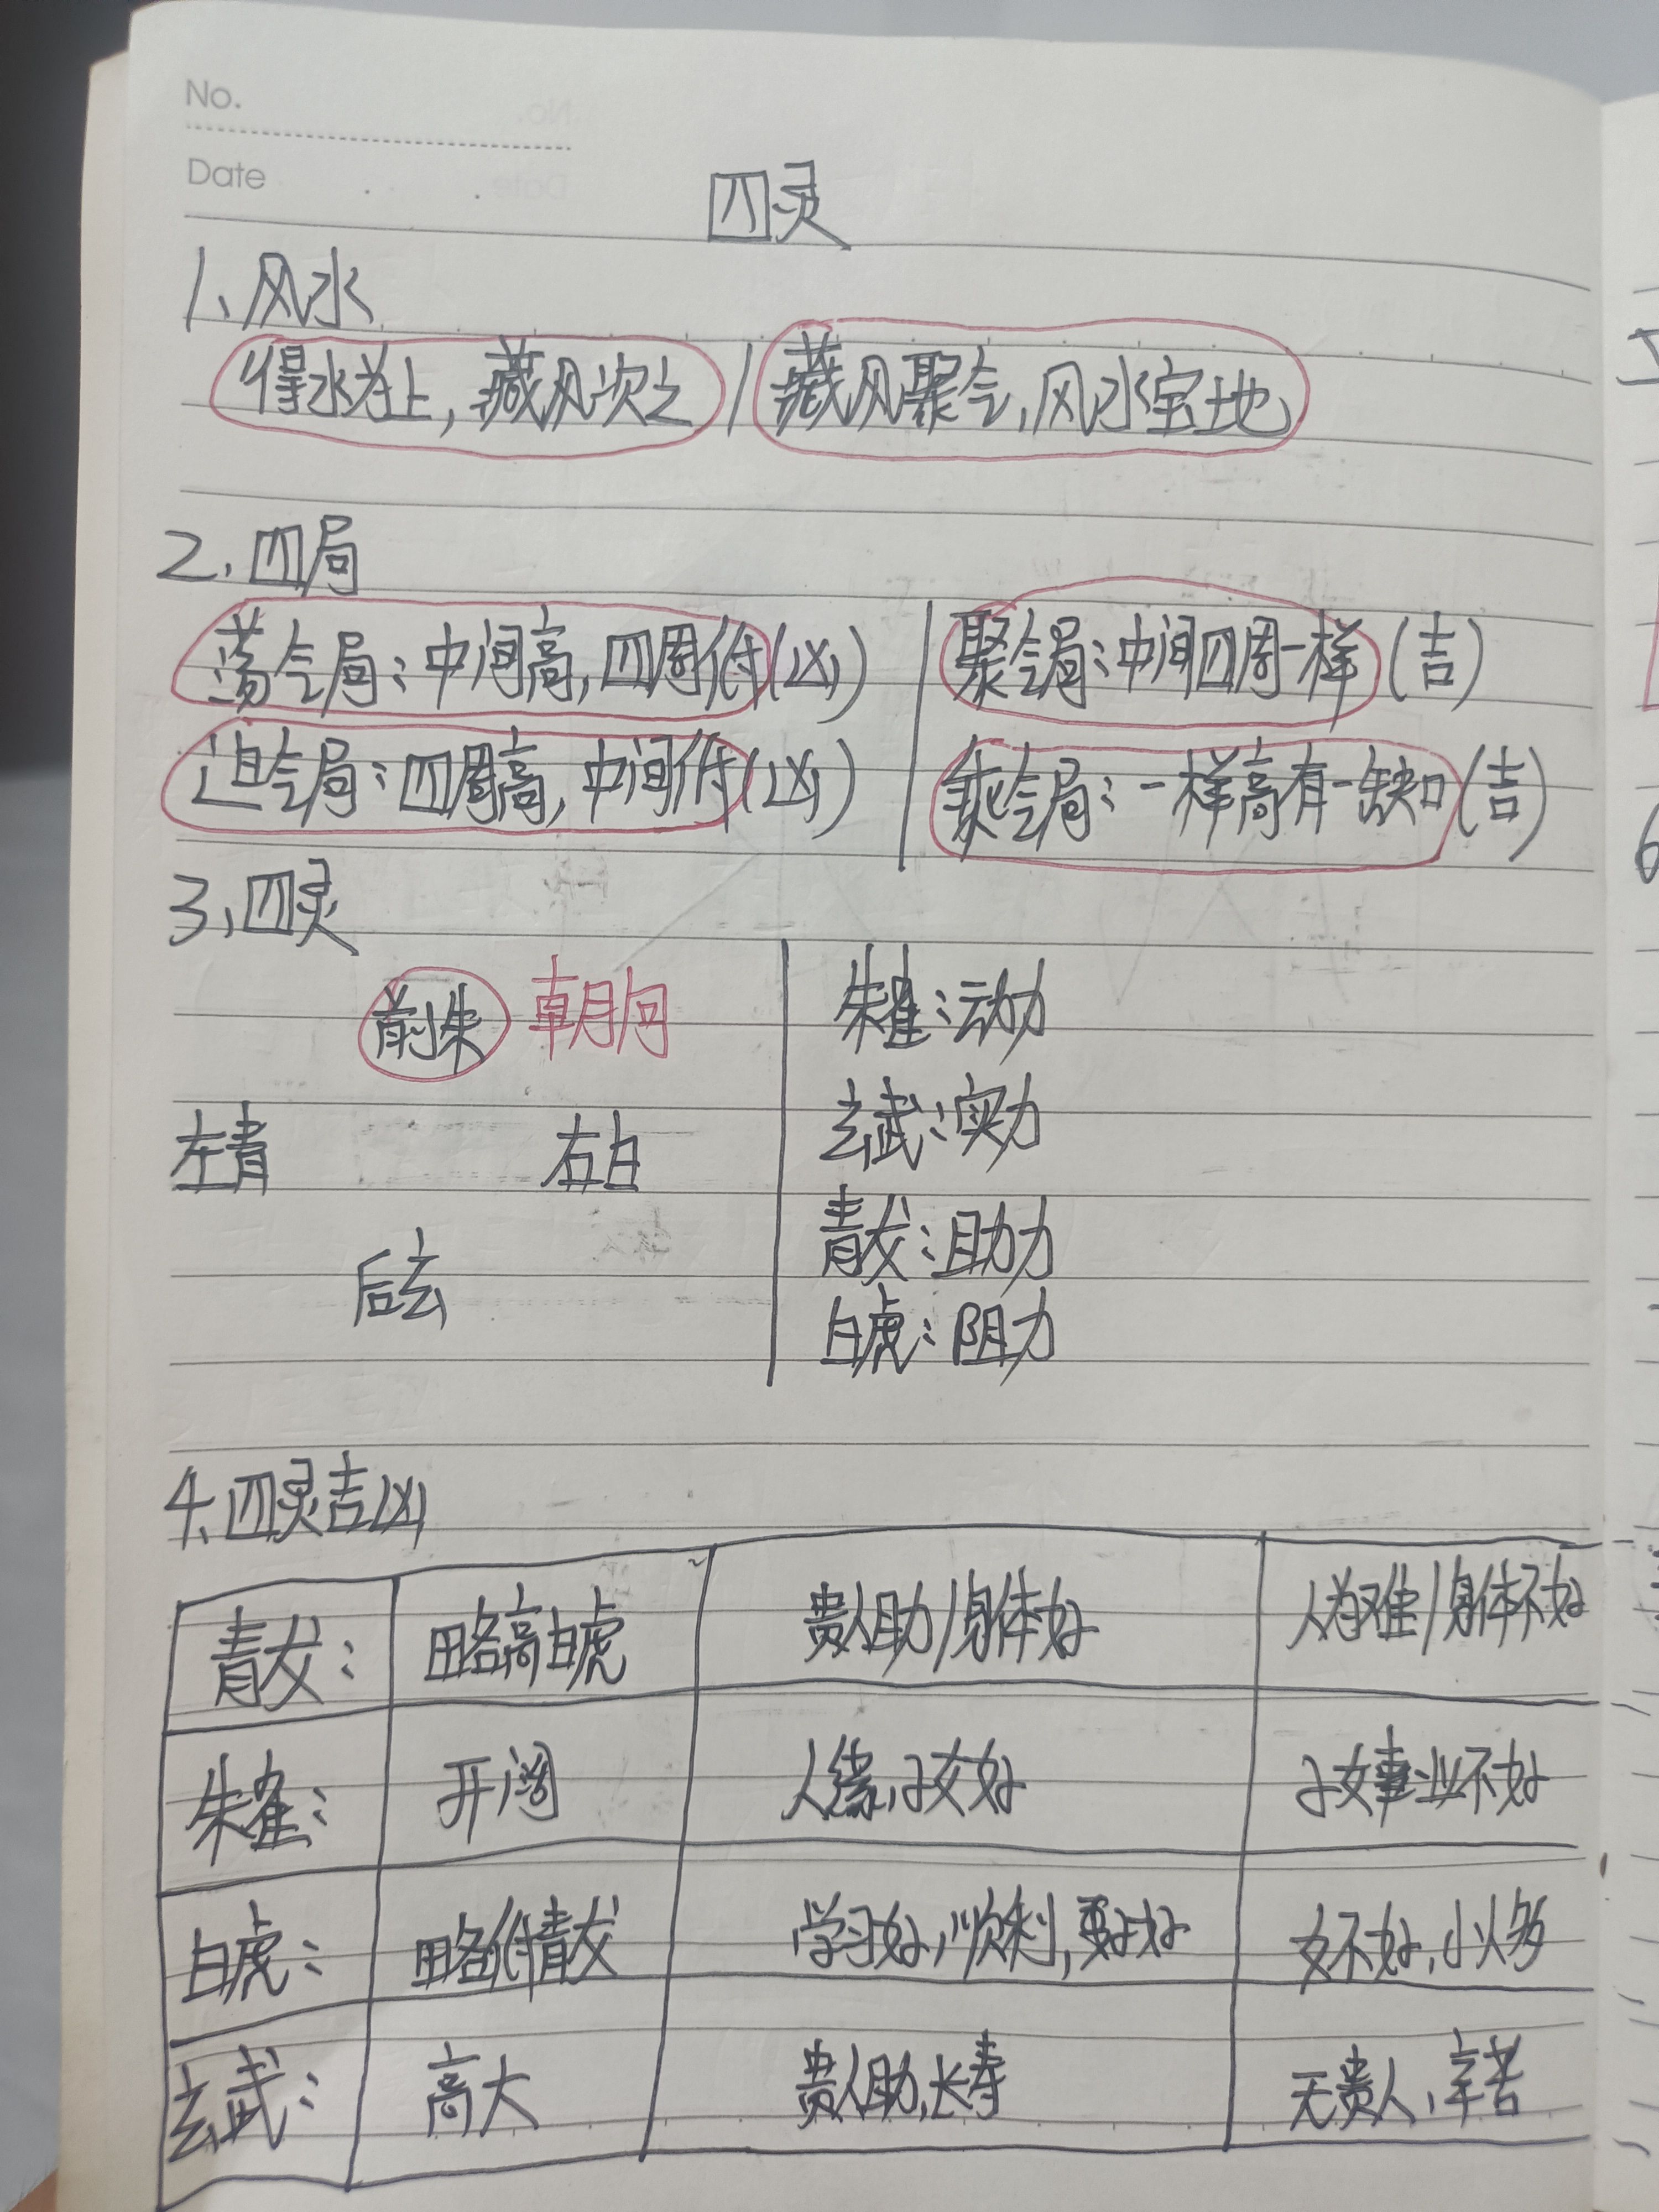 No.
Date
四灵
1、风水
得水为上,藏风次之 | 藏风聚气,风水宝地
2、四局
荡气局:中间高,四周低(凶) | 聚气局:中间四周一样(吉)
迫气局:四周高,中间低(凶) | 乘气局:一样高有一缺口(吉)
3、四灵
前朱 朝向
左青 右白
后玄
朱雀:动力
玄武:实力
青龙:助力
白虎:阻力
4、四灵吉凶
青龙: 略高白虎 贵人助/身体好 人为难/身体不好
朱雀: 开阔 人缘,子女好 子女事业不好
白虎: 略低青龙 学习好,顺利,妻子好 女不好,小人多
玄武: 高大 贵人助,长寿 无贵人,辛苦